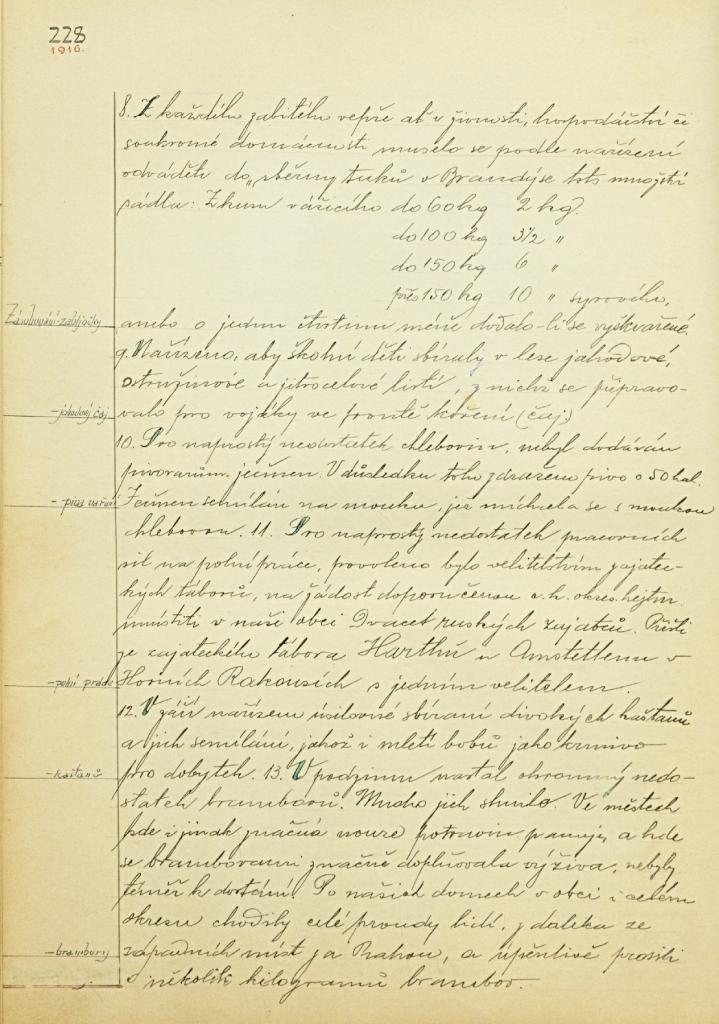 228
1916.
8. Z každého zabitého vepře ať v živnosti, hospodářství či
soukromé domácnosti muselo se podle nařízení
odváděti do „sběrny tuků v Brandýse toto množství
sádla: Z kusu vážícího do 60 kg 2 kg.
do 100 kg 3 1/2 "
do 150 kg 6 "
přes 150 kg 10 " syrového,
anebo o jednu čtvrtinu méně dodalo-li se vyškvařené.
9. Nařízeno, aby školní děti sbíraly v lese jahodové,
ostružinové a jitrocelové listí, z nichž se připravo-
valo pro vojáky ve frontě koření (čaj)
10. Pro naprostý nedostatek chlebovin, nebyl dodáván
pivovarům ječmen. V důsledku toho zdraženo pivo o 50 hal.
Ječmen semílán na mouku, jež míchala se s moukou
chlebovou. 11. Pro naprostý nedostatek pracovních
sil na polní práce, povoleno bylo velitelstvím zajatec-
kých táborů, na žádost doporučenou c. k. okres. hejtm.
umístiti v naší obci Dvacet ruských zajatců. Přišli
ze zajateckého tábora Harthů u Amstettenu v
Horních Rakousích s jedním velitelem.
12. V září nařízeno úsilovné sbíraní divokých kaštanů
a jich semílání, jakož i mletí bobů jako krmivo
pro dobytek. 13. V podzimu nastal ohromný nedo-
statek bramborů. Mnoho jich shnilo. Ve městech
kde i jinak značná nouze potravin panuje, a kde
se bramborami značně doplňovala výživa, nebyly
téměř k dostání. Po našich domech v obci i celém
okresu chodily celé proudy lidí, z daleka ze
západních míst za Prahou, a úpěnlivě prosili
o několik kilogramů brambor.
-jahodový čaj
-piva vaření
-polní práce
-kaštanů
-brambory